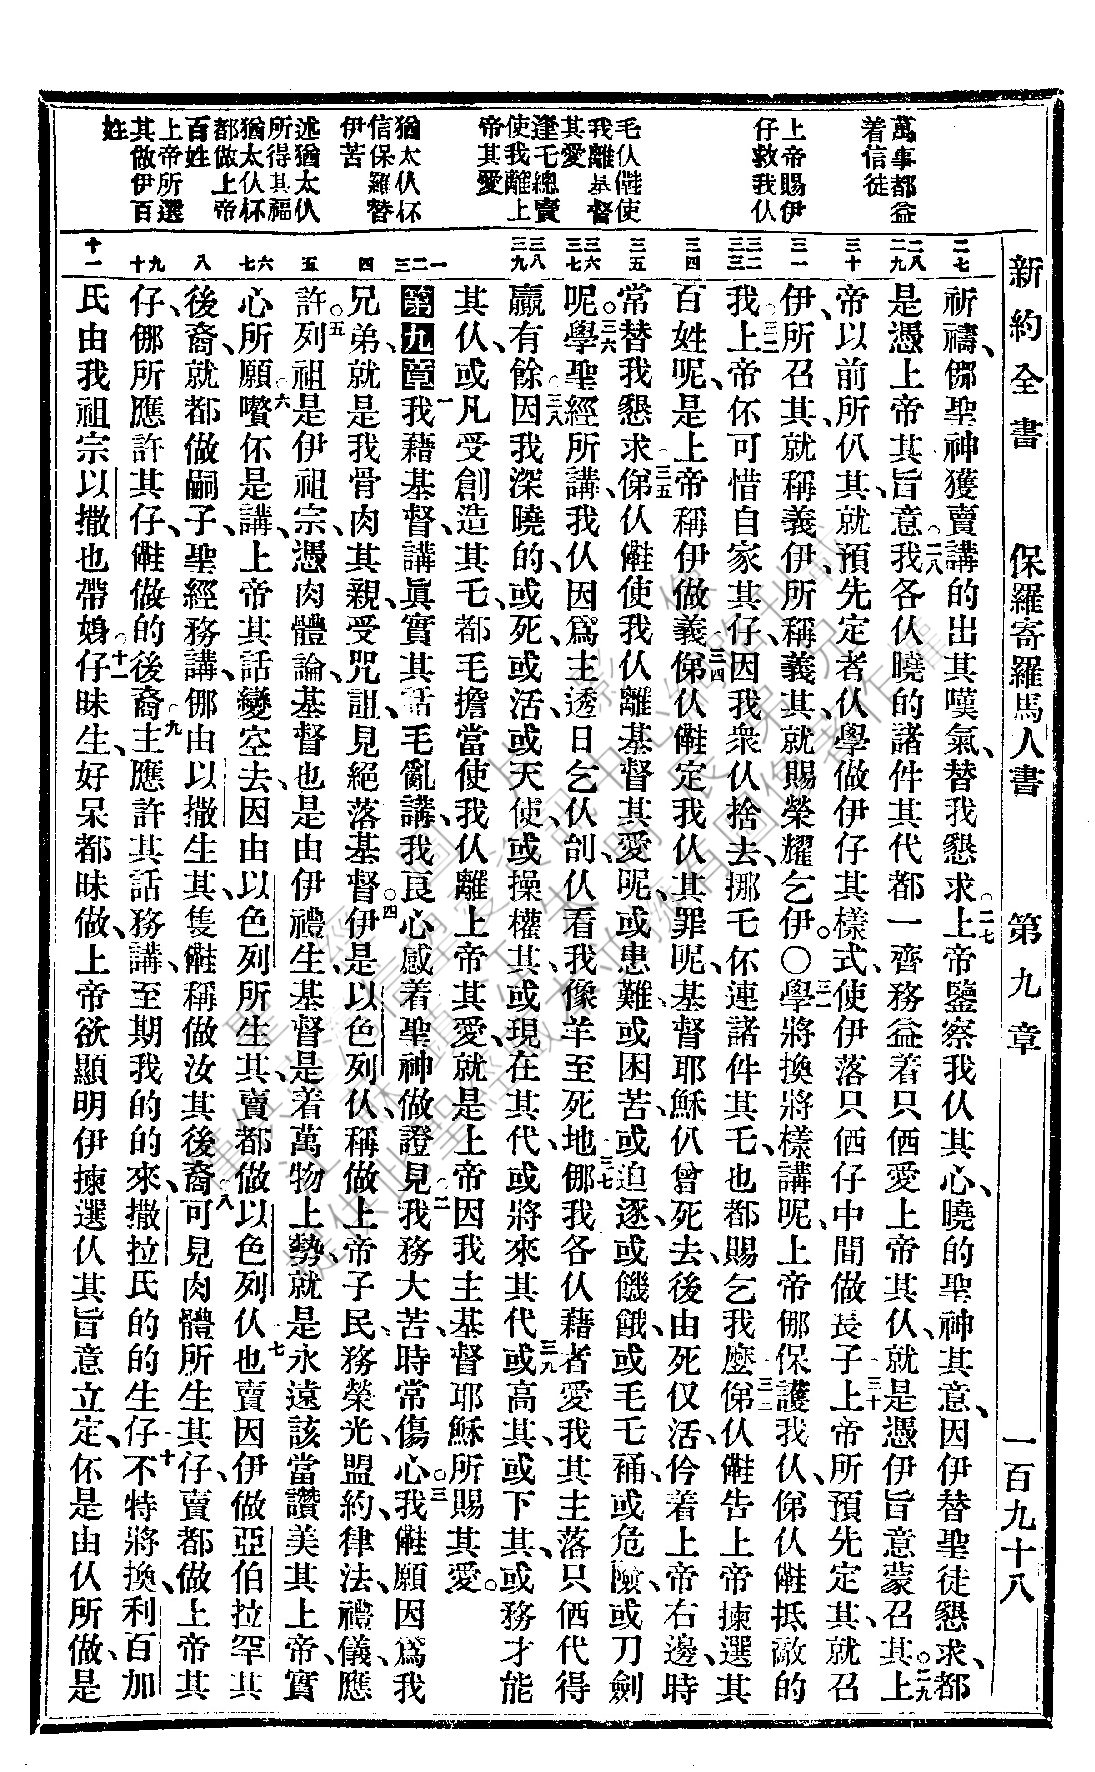 新約全書　保羅寄羅馬人書　第九章　一百九十八
萬事都益
着信徒
上帝賜伊
仔救我仈
毛仈𣍐使
我離基督
其愛
逢乇總賣
使我離上
帝其愛
猶太仈怀
信保羅替
伊苦
述猶太仈
所得其福
猶太仈怀
都做上帝
百姓
上帝所選
其做伊百
姓
二七
二八
二九
三十
三一
三二
三三
三四
三五
三六
三七
三八
三九
一
二
三
四
五
六
七
八
九
十
十一
祈禱、㑚聖神獲賣講的出其嘆氣、替我懇求。二七上帝鑒察我仈其心、曉的聖神其意、因伊替聖徒懇求、都
是憑上帝其旨意。二八我各仈曉的諸件其代都一齊務益着只僫愛上帝其仈、就是憑伊旨意蒙召其。二九上
帝以前所仈其、就預先定者仈學做伊仔其樣式、使伊落只僫仔中間做長子、三十上帝所預先定其、就召
伊、所召其、就稱義伊、所稱義其、就賜榮耀乞伊。〇三一學將換將樣講呢、上帝㑚保護我仈、俤仈𣍐抵敵的
我。三二上帝怀可惜自家其仔、因我衆仈捨去、挪毛怀連諸件其乇、也都賜乞我麽、三三俤仈𣍐告上帝揀選其
百姓呢、是上帝稱伊做義、三四俤仈𣍐定我仈其罪呢、基督耶穌仈曾死去、後由死仅活、仱着上帝右邊、時
常替我懇求、三五俤仈𣍐使我仈離基督其愛呢、或患難、或困苦、或迫逐、或饑餓、或毛乇䘄、或危險、或刀劍
呢。三六學聖經所講、我仈因爲主透日乞仈刣、仈看我像羊至死地、三七㑚我各仈藉者愛我其主、落只僫代得
贏有餘、三八因我深曉的、或死、或活、或天使、或操權其、或現在其代、或將來其代、三九或高其、或下其、或務才能
其仈、或凡受創造其乇、都毛擔當使我仈離上帝其愛、就是上帝因我主基督耶穌所賜其愛。
第九章　一我藉基督、講眞實其話、毛亂講、我良心感着聖神做證見、二我務大苦、時常傷心。三我𣍐願因爲我
兄弟、就是我骨肉其親、受咒詛、見絕落基督。四伊是以色列仈、稱做上帝子民、務榮光、盟約、律法、禮儀、應
許。五列祖是伊祖宗、憑肉體論、基督也是由伊禮生、基督是着萬物上勢、就是永遠該當讚美其上帝、實
心所願。六嚽怀是講、上帝其話變空去、因由以色列所生其、賣都做以色列仈、七也賣因伊做亞伯拉罕其
後裔、就都做嗣子、聖經務講、㑚由以撒生其、隻𣍐稱做汝其後裔、八可見肉體所生其仔、賣都做上帝其
仔、㑚所應許其仔、𣍐做的後裔。九主應許其話務講、至期我的的來、撒拉氏的的生仔、十不特將換、利百加
氏由我祖宗以撒也帶娠。十一仔昧生、好呆都昧做、上帝欲顯明伊揀選仈其旨意立定、怀是由仈所做、是